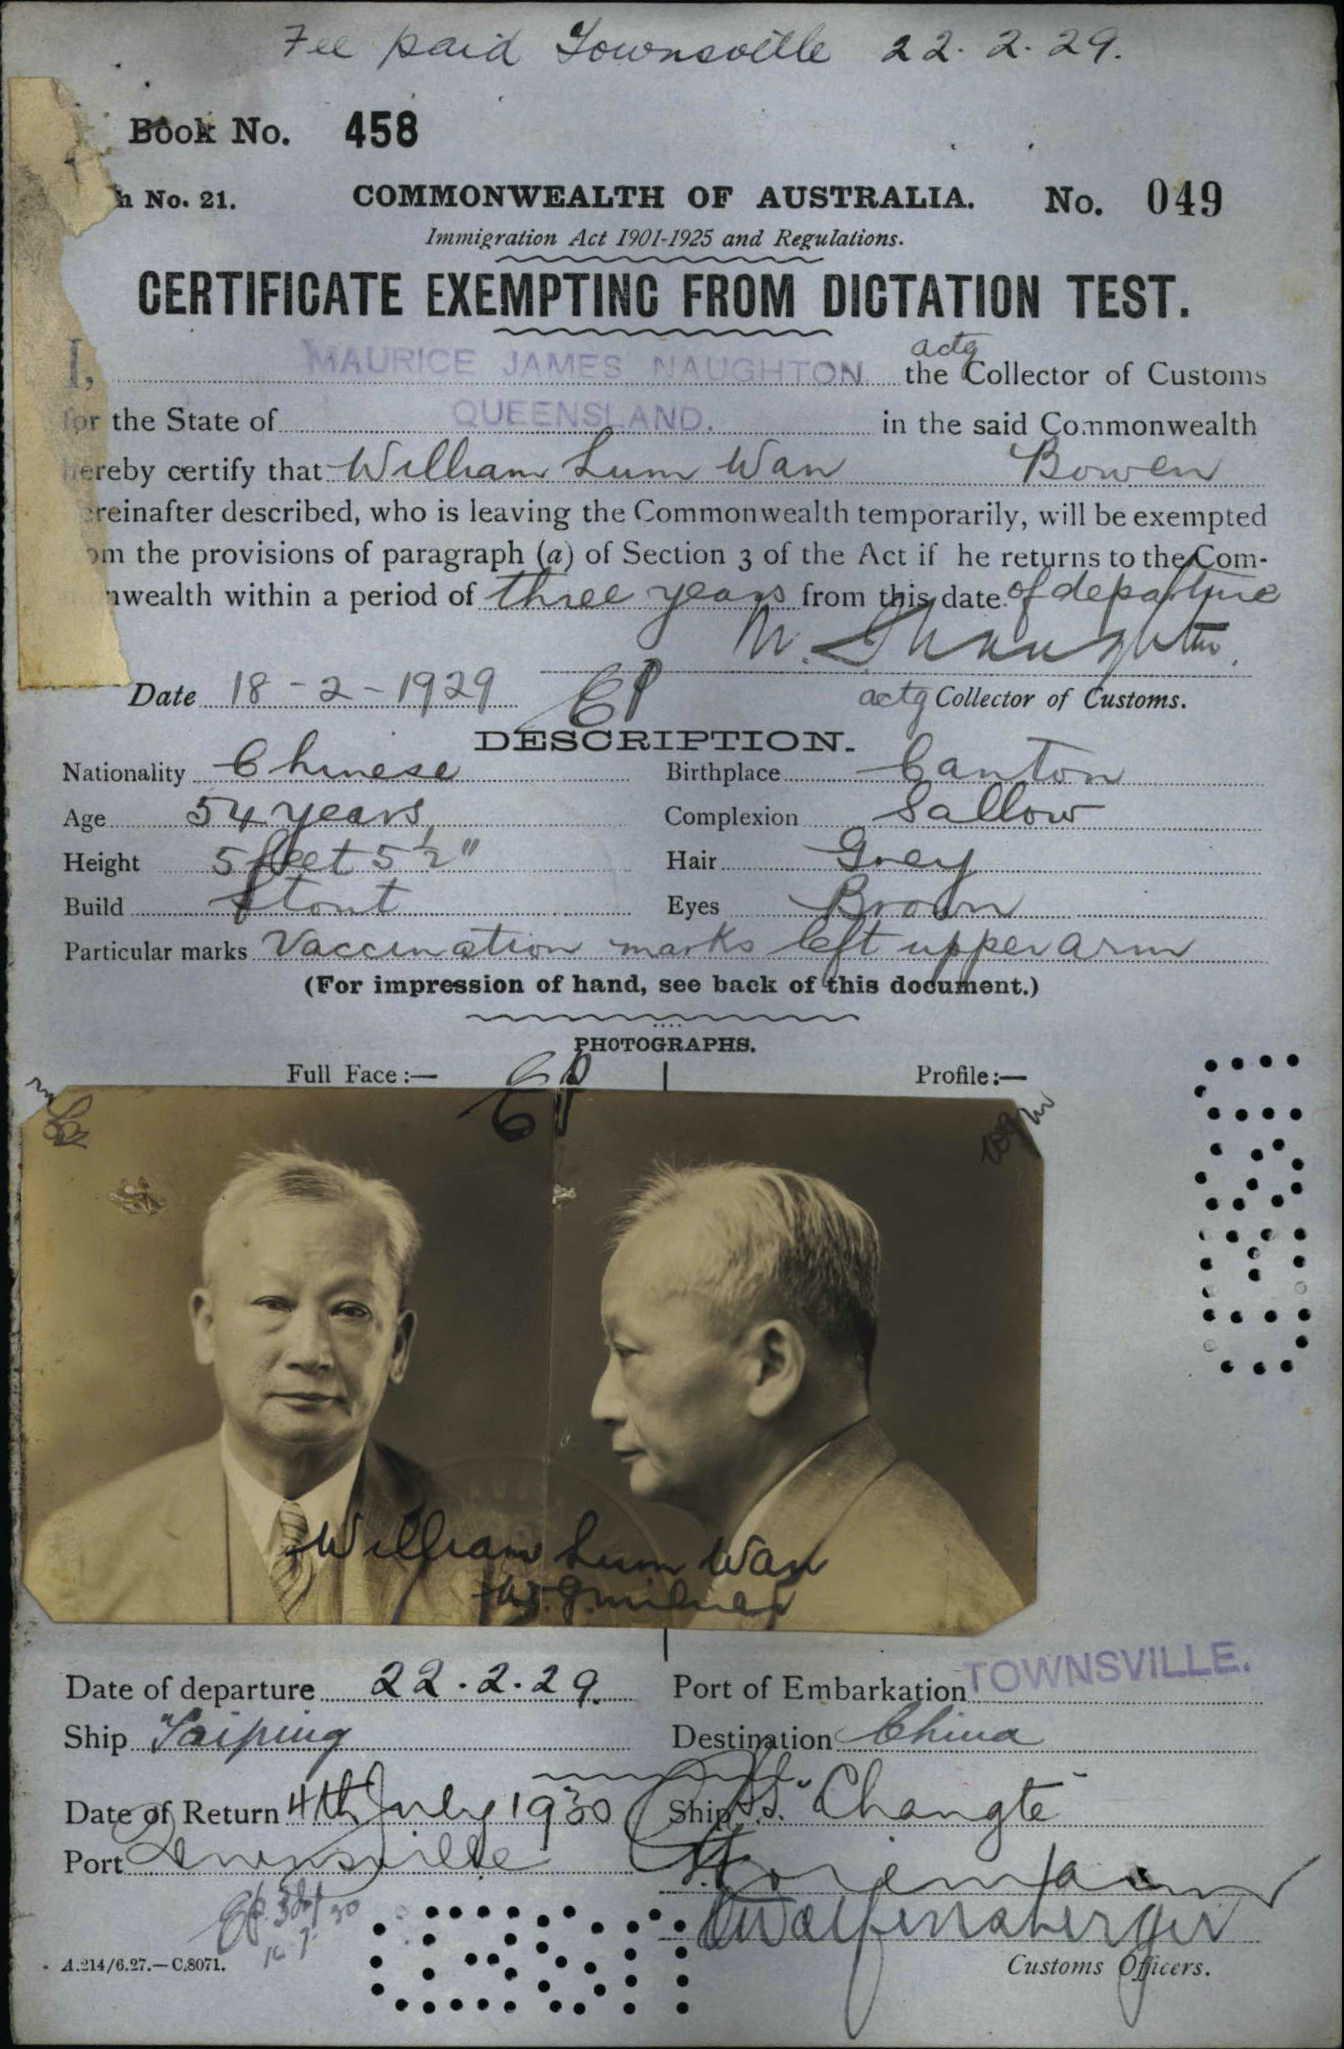 Fee paid Townsville 22.2.29.
Book No. 458
No. 21. COMMONWEALTH OF AUSTRALIA. No. 049
Immigration Act 1901-1925 and Regulations.
CERTIFICATE EXEMPTING FROM DICTATION TEST.
actg
I, MAURICE JAMES NAUGHTON the Collector of Customs
for the State of QUEENSLAND. in the said Commonwealth
hereby certify that William Lum Wan Bowen
reinafter described, who is leaving the Commonwealth temporarily, will be exempted
om the provisions of paragraph (a) of Section 3 of the Act if he returns to the Com-
nwealth within a period of three years from this date of departure
Date 18-2-1929 actg Collector of Customs.
DESCRIPTION.
Nationality Chinese Birthplace Canton
Age 54 years Complexion Sallow
Height 5 feet 5 1/2" Hair Grey
Build Stout Eyes Brown
Particular marks Vaccination marks left upper arm
(For impression of hand, see back of this document.)
PHOTOGRAPHS.
Full Face:— Profile:—
William Lum Wan
Date of departure 22.2.29. Port of Embarkation TOWNSVILLE.
Ship "Taiping Destination China
Date of Return 4th July 1930 Ship S.S. "Changte"
Port Townsville
A.214/6.27.—C.8071. Customs Officers.